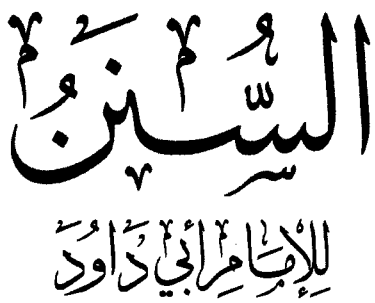 السُّنَنُ
لِلإِمَامِ أَبِي دَاوُدَ